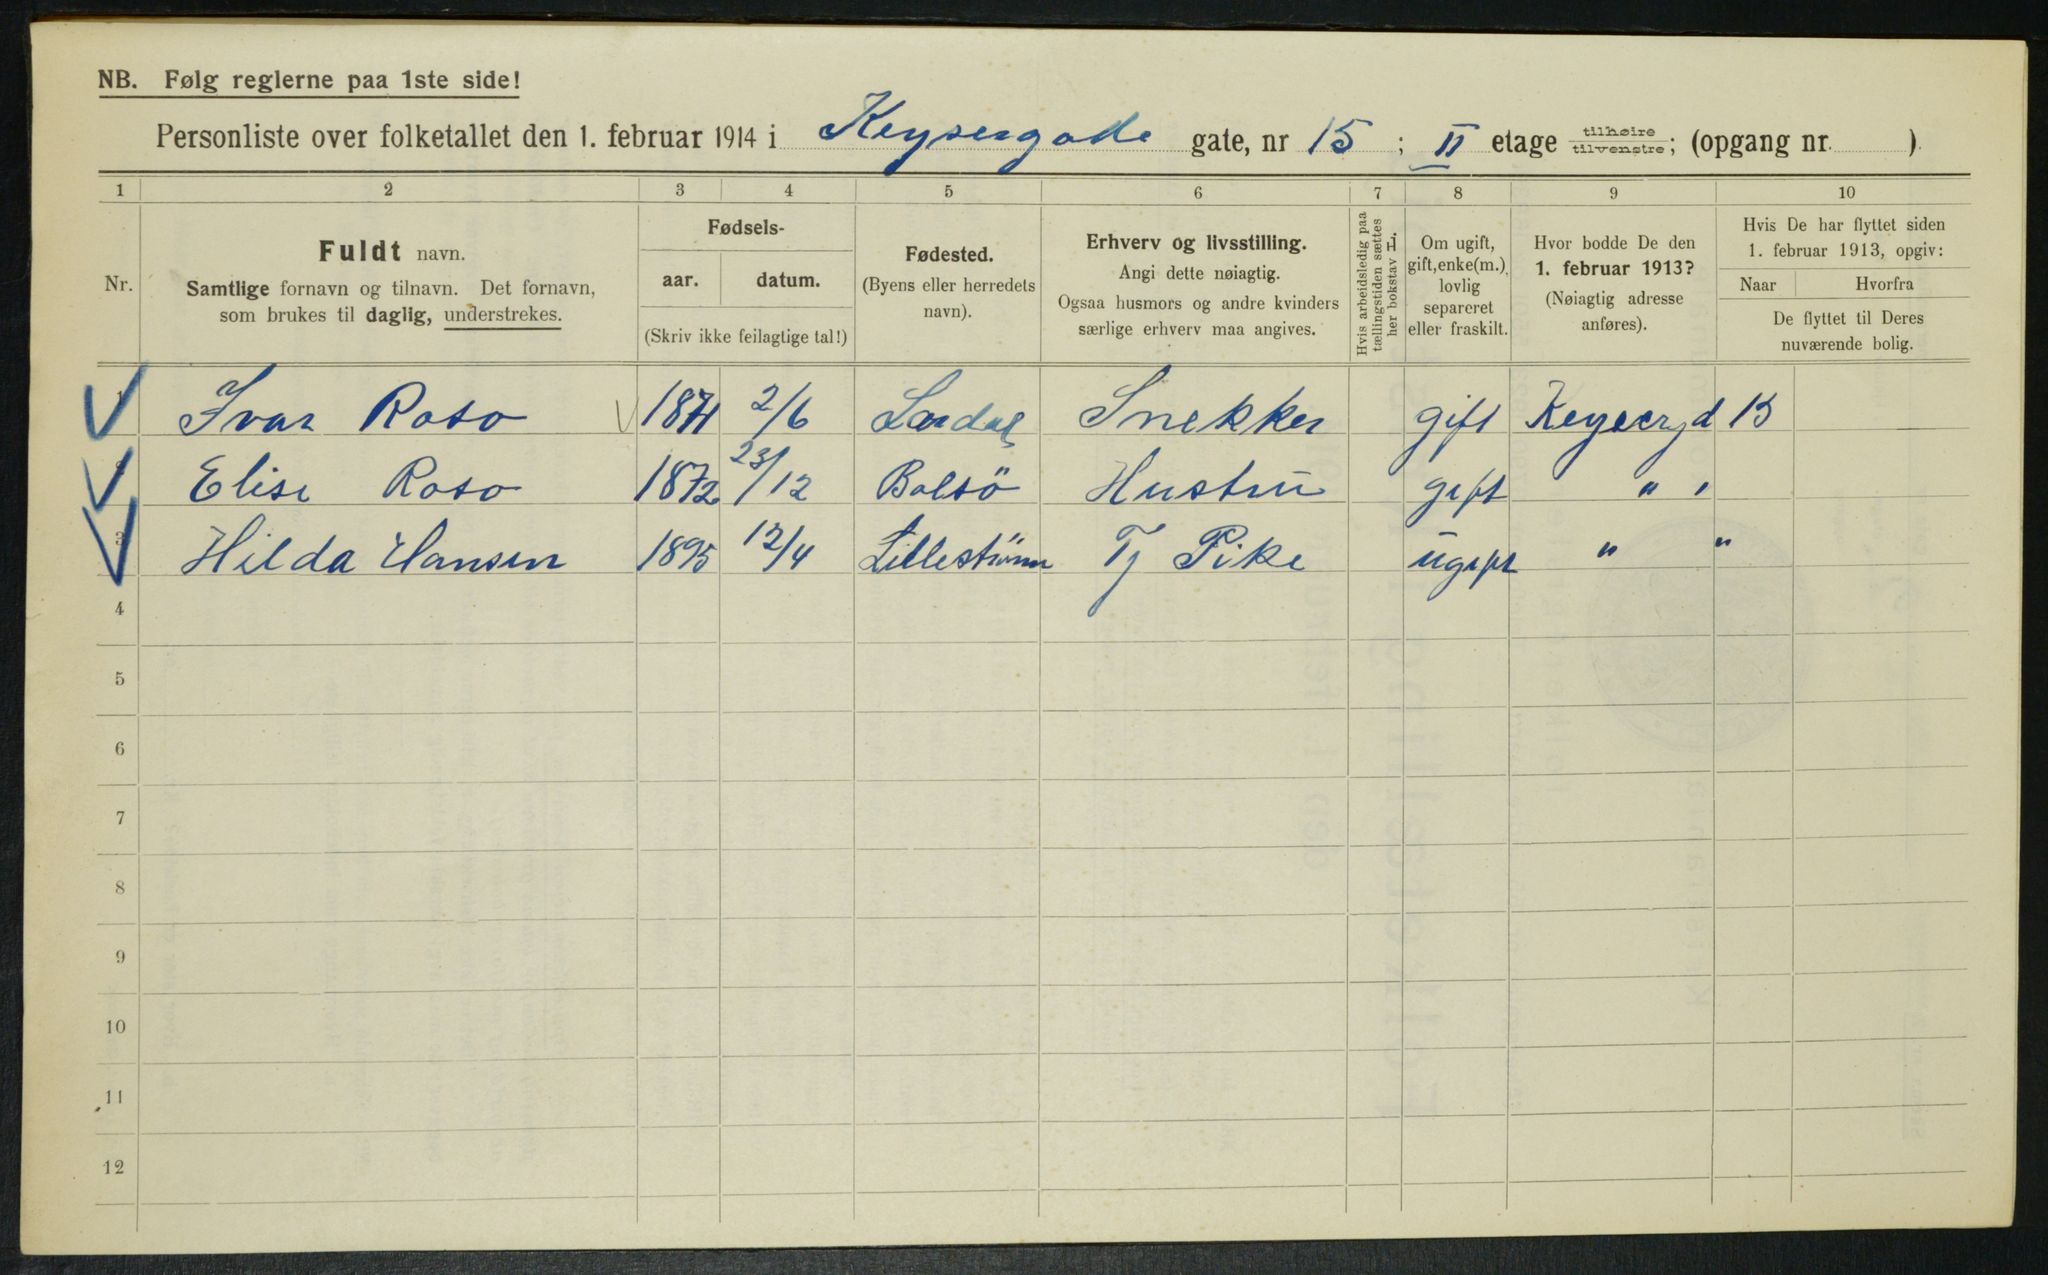 NB. Følg reglerne paa 1ste side!
Personliste over folketallet den 1. februar 1914 i Keysergade gate, nr 15 ; II etage tilhøire tilvenstre; (opgang nr. )
1 2 3 4 5 6 7 8 9 10
Nr.
Fuldt navn.
Samtlige fornavn og tilnavn. Det fornavn,
som brukes til daglig, understrekes.
Fødsels-
aar. datum.
(Skriv ikke feilagtige tal!)
Fødested.
(Byens eller herredets
navn).
Erhverv og livsstilling.
Angi dette nøiagtig.
Ogsaa husmors og andre kvinders
særlige erhverv maa angives.
Hvis arbeidsledig paa
tællingstiden sættes
her bokstav L.
Om ugift,
gift, enke(m.),
lovlig
separeret
eller fraskilt.
Hvor bodde De den
1. februar 1913?
(Nøiagtig adresse
anføres).
Hvis De har flyttet siden
1. februar 1913, opgiv:
Naar Hvorfra
De flyttet til Deres
nuværende bolig.
1 Ivar Roso 1871 2/6 Snekker gift 15
2 Elise Roso 1872 23/12 Bolsö Hustru gift " "
3 Hilda Hansen 1895 12/4 Lilleström Tj Pike ugift " "
4
5
6
7
8
9
10
11
12